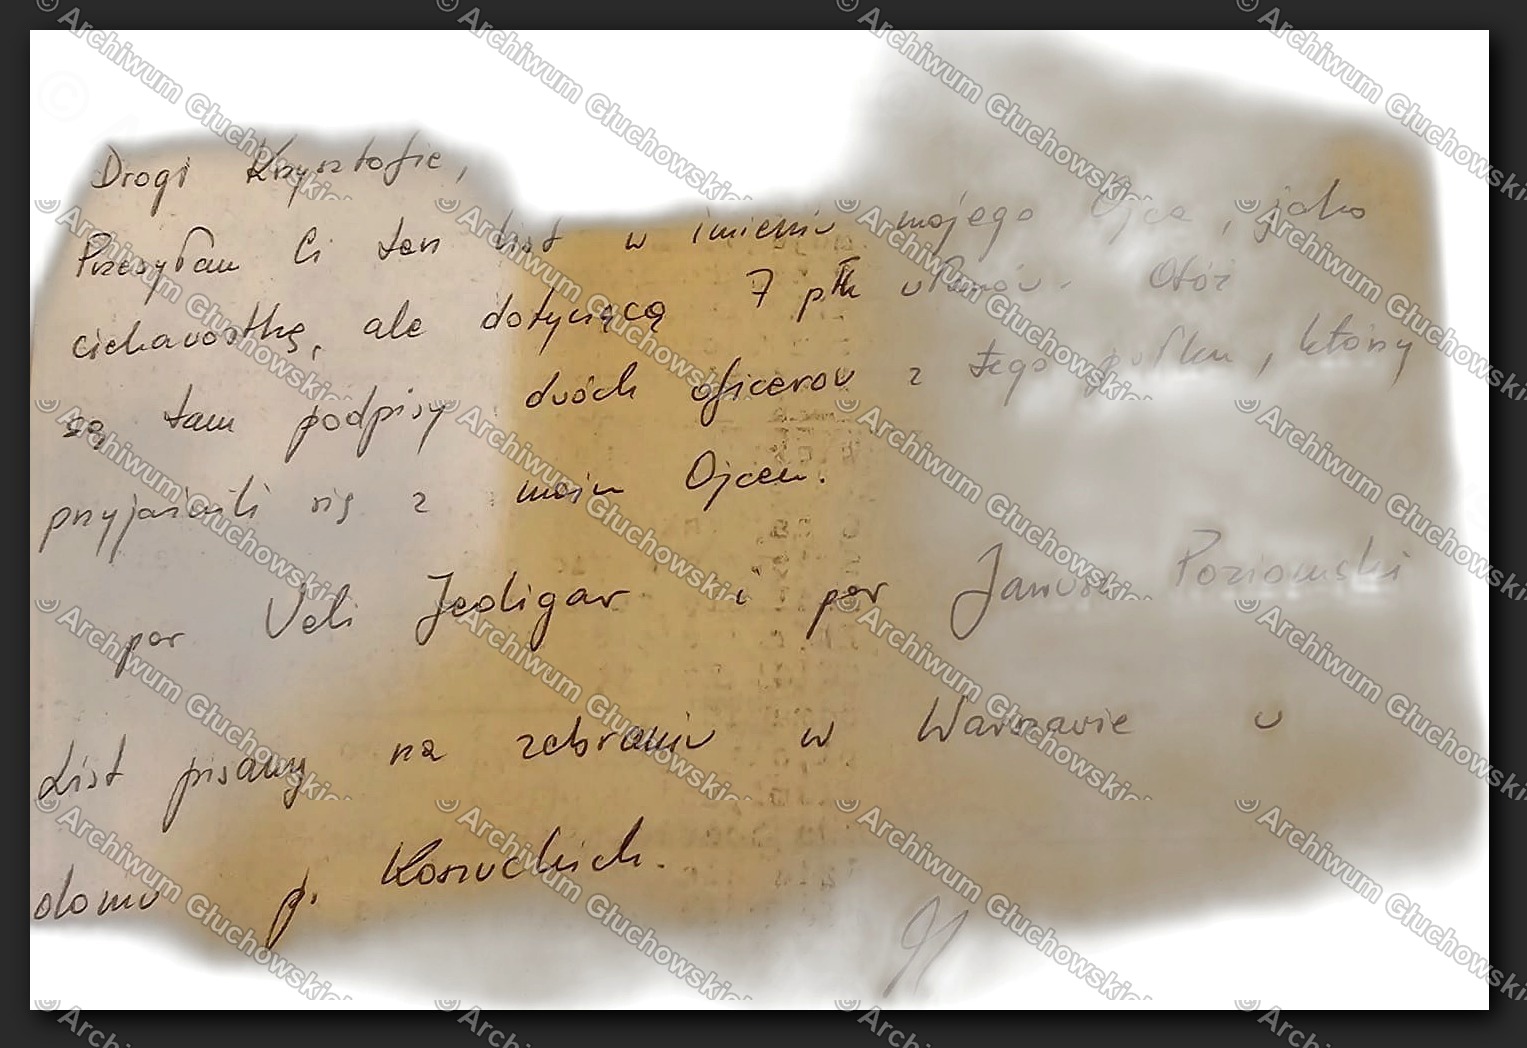 Drogi Krzysztofie,
Przesyłam Ci ten list w imieniu mojego Ojca, jako
ciekawostkę, ale dotyczącą 7 płk ułanów. Otóż
są tam podpisy dwóch oficerów z tego pułku, którzy
przyjaźnili się z moim Ojcem.
por Veli Jedigar i por Janusz Poziomski
List pisany na zebraniu w Warszawie w
domu p. Kossuckich.
© Archiwum Głuchowskich